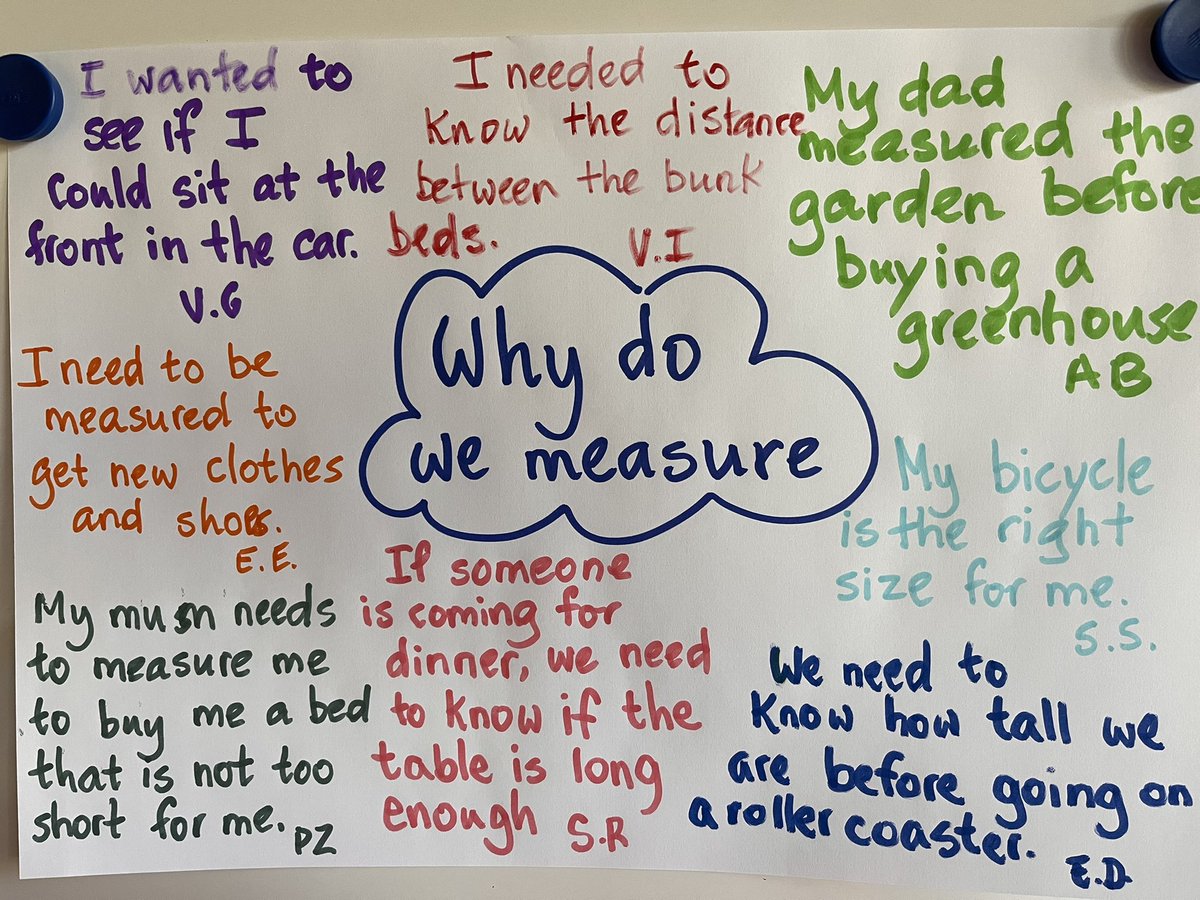 I wanted to
see if I
could sit at the
front in the car.
V.G
I needed to
know the distance
between the bunk
beds.
V.I
My dad
measured the
garden before
buying a
greenhouse
AB
Why do
we measure
I need to be
measured to
get new clothes
and shoes.
E.E.
My bicycle
is the right
size for me.
S.S.
My mum needs
to measure me
to buy me a bed
that is not too
short for me.
PZ
If someone
is coming for
dinner, we need
to know if the
table is long
enough
S.R
We need to
know how tall we
are before going on
a roller coaster.
E.D.